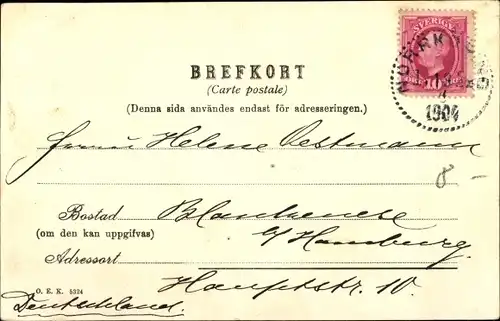 SVERIGE
1904
BREFKORT
(Carte postale)
(Denna sida användes endast för adresseringen.)
Herrn Helene Oestmann
8 -
Bostad Blankenese
(om den kan uppgifvas) b/ Hamburg.
Adressort
Hauptstr. 10.
O. E. K. 5324
Deutschland.